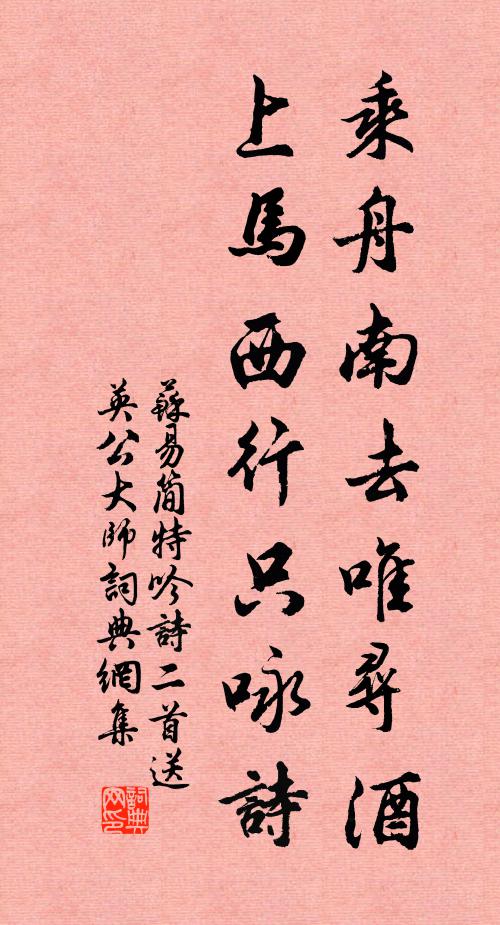 乘舟南去唯尋酒
上馬西行只咏詩
蘇易簡特吟詩二首送
英公大師詞典網集
詞典
网印